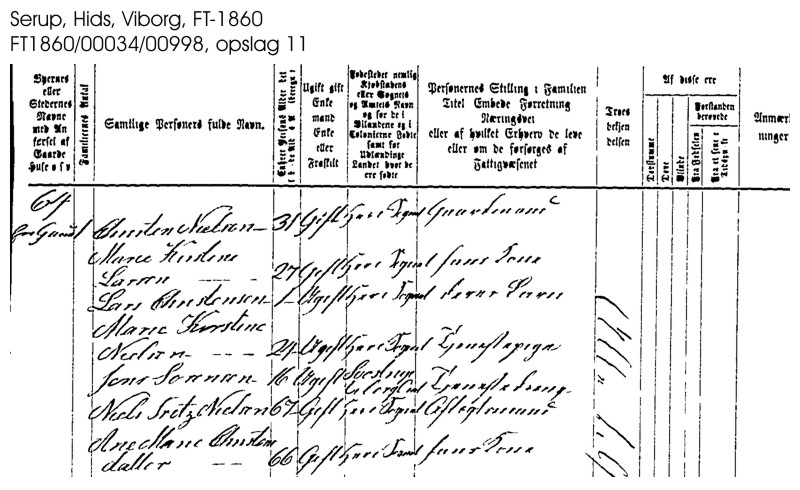 Serup, Hids, Viborg, FT-1860
FT1860/00034/00998, opslag 11
Byernes eller Stedernes Navne med An førsel af Gaarde Huse o s v
Familiernes Antal
Samtlige Personers fulde Navn.
Ugift gift Enke mand Enke eller Fraskilt
Fødestedet nemlig Kjøbstadens eller Sognets og Amtets Navn og for de i Bilandene og i Colonierne Fødte samt for Udlændinge Landet hvor de ere fødte
Personernes Stilling i Familien Titel Embede Forretning Næringsvei eller af hvilket Erhverv de leve eller om de forsørges af Fattigvæsenet
Troes bekjen delsen
Af disse ere
Døvstumme
Døve
Blinde
Forstanden berøvede
Fra Fødselen
Anmærk ninger
en Gaard 1 Christen Nielsen 31 Gift Her i Sognet Gaardmand
Marie Kirstine
Larsen 27 Gift Her i Sognet hans Kone
Lars Christensen 1 Ugift Her i Sognet deres Barn
Marie Kirstine
Nielsen 24 Ugift Her i Sognet Tjenestepige
Jens Sørensen 16 Ugift Tjenestedreng
Niels Fritz Nielsen 67 Gift Her i Sognet Aftægtsmand
Ane Marie Christens
datter 66 Gift Her i Sognet hans Kone